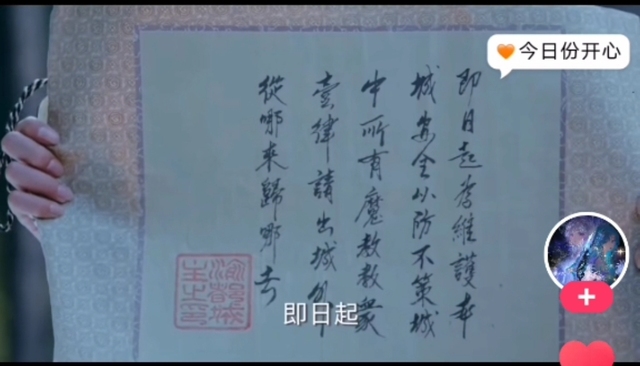 🧡今日份开心
即日起為維護本
城安全以防不策城
中所有魔教教眾
壹律請出城外
從哪來歸哪去
渝都城
主之印
即日起